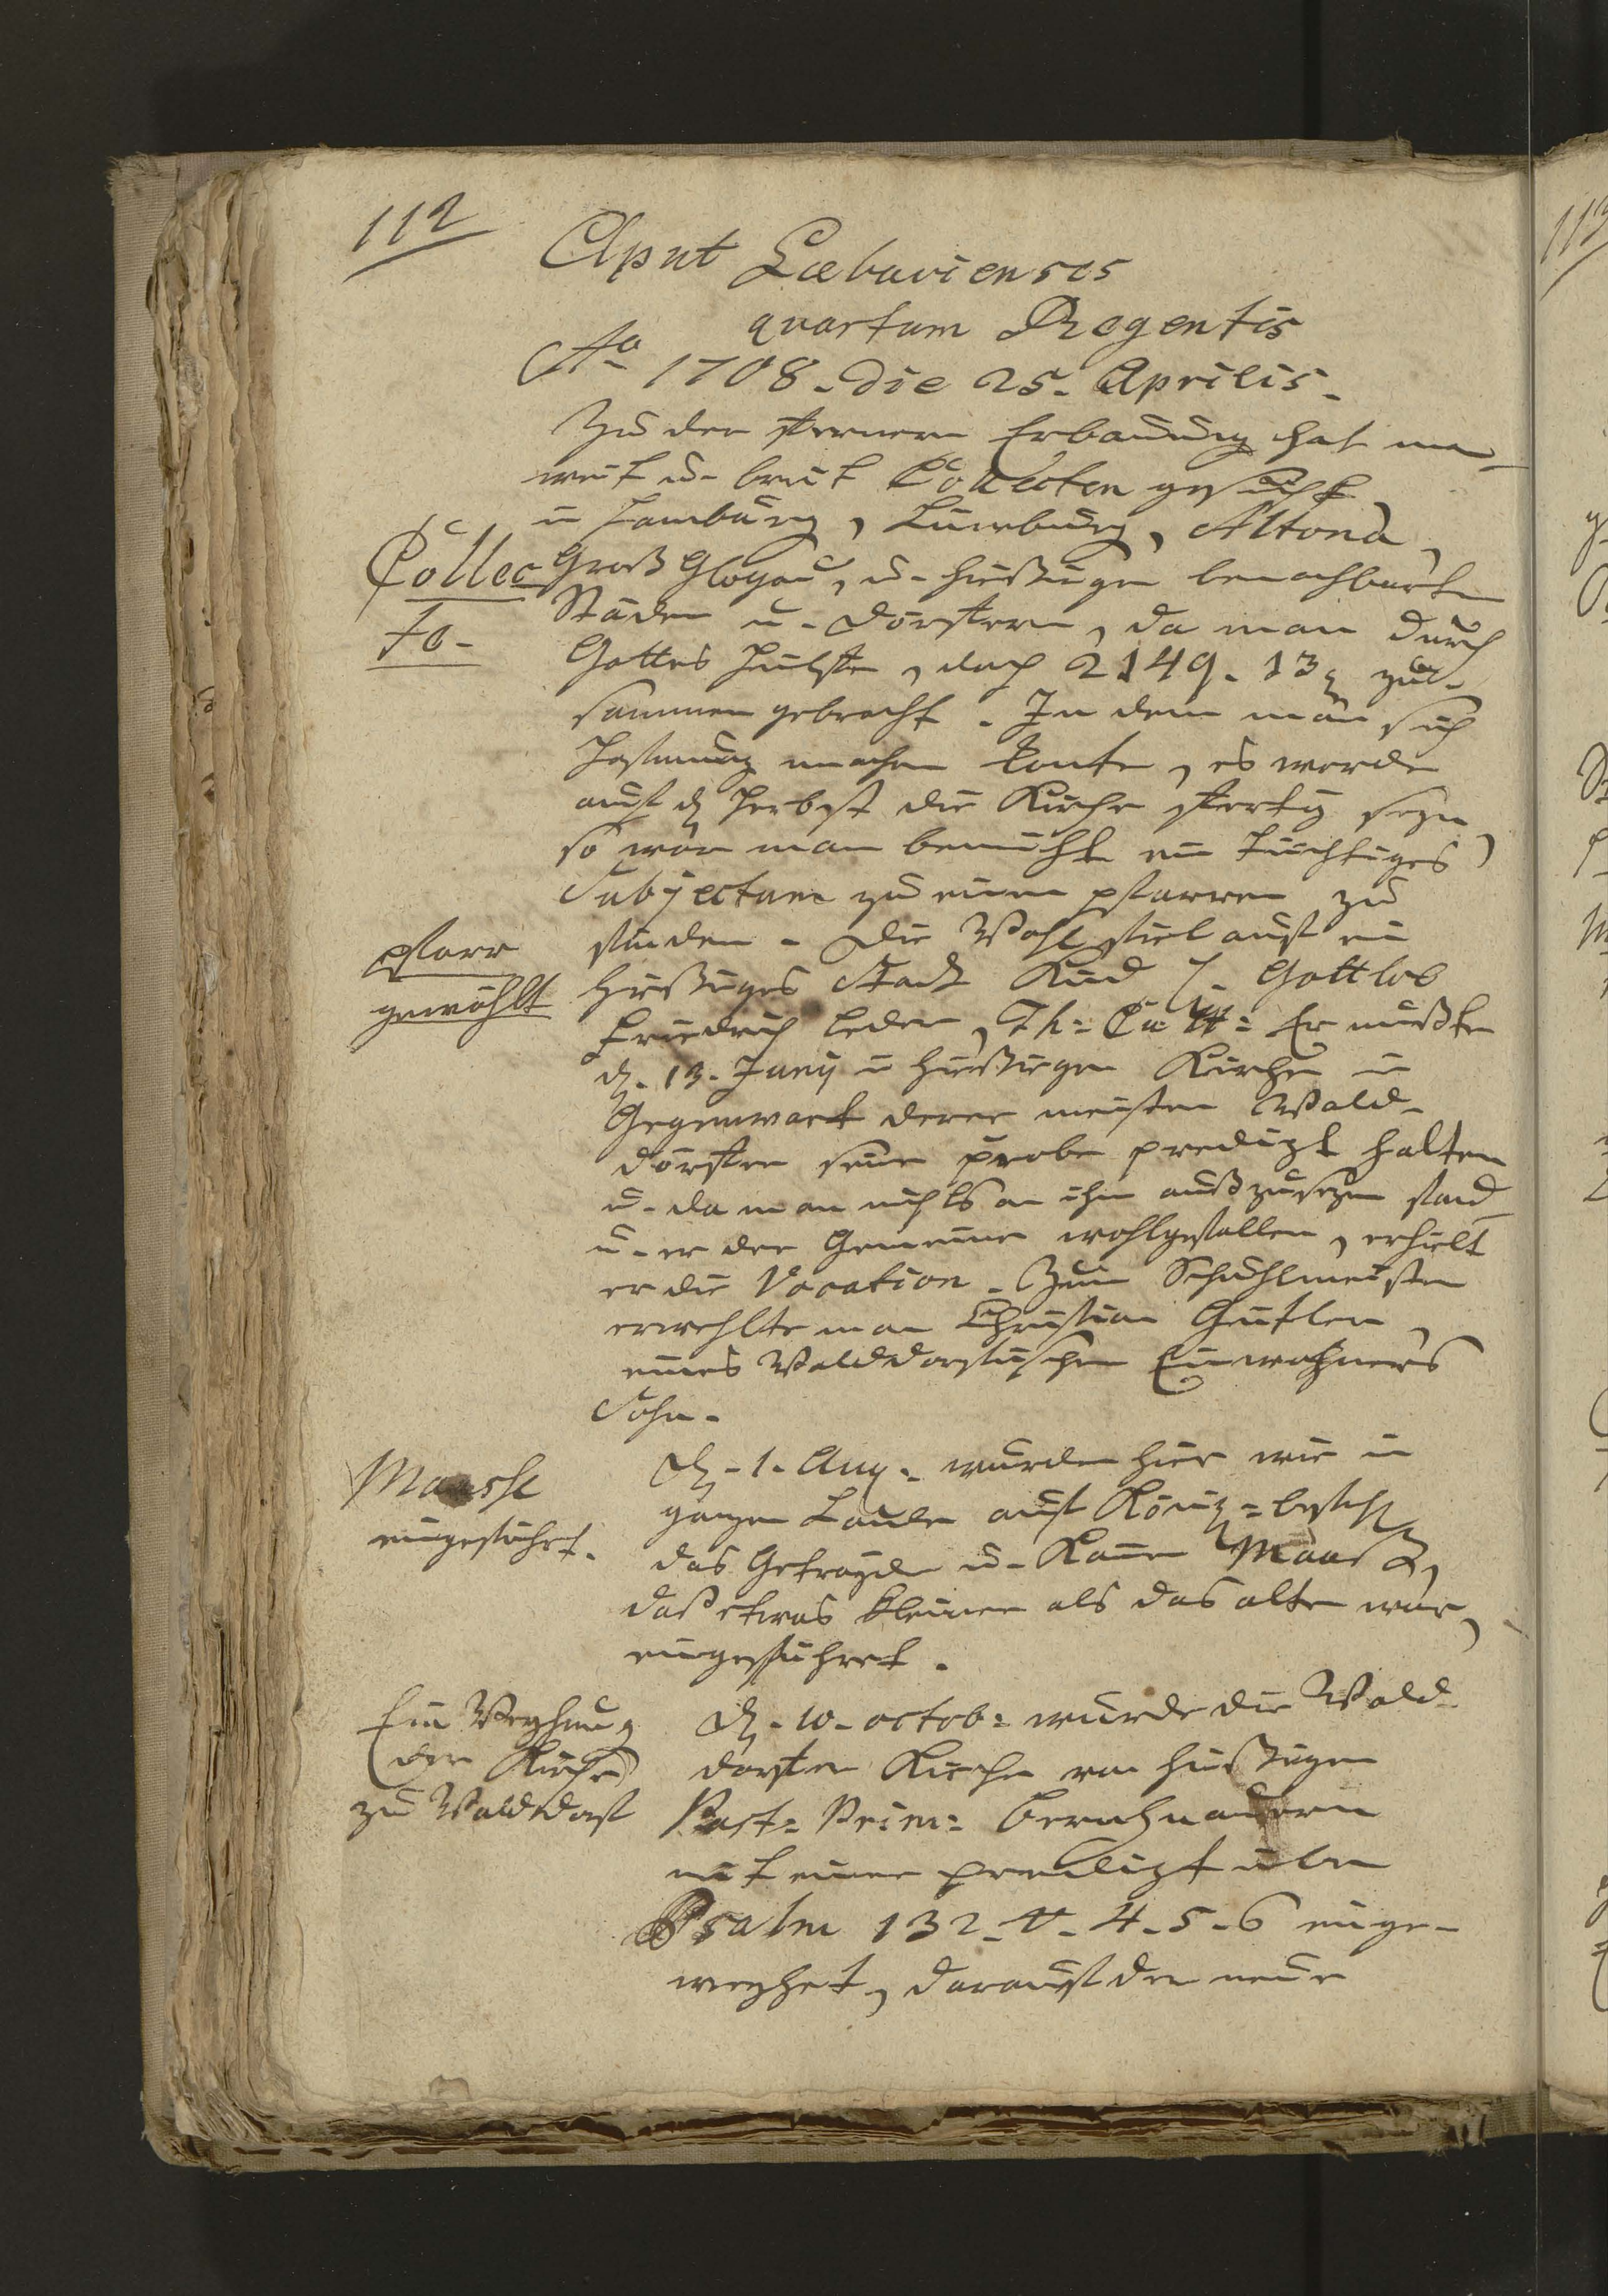 112
Aput Loebaviensis
quartum Regentis
Ao 1708. die 25. Aprilis.
Zu der fernern Erbauung hat man
weit u. breit Collecten gesucht
in Hamburg, Lüneburg, Altona,
Collec
Groß Glogau, u. hießigen benachbarten
te.
Städen u. Dörffern, da man durch
Gottes Hülffe, doch 2149. 13 zu-
sammen gebracht. In dem man sich
Hoffnung machen konte, es werde
auf den Herbst die Kirche ffertig seyn,
so war man bemüht ein tüchtiges
Subjectum zu einen pfarren zu
pfarr
finden. Die Wahl fiel auf ein
gewählt
hießiges Stadt Kind Gottlob
Friedrich Leder, Th: Er mußte
d. 13. Juny in hießigen Kirche in
Gegenwart derer meisten Wald-
dörffer seine probe predigt halten
u. da man nichts an ihn außzusezen fand
u. er der Gemeine wohlgefallen, erhielt
er die Vocation. Zum Schuhlmeister
erwehlte man Christian
eines Walddorffischen Einwohners
Sohn.
Maasse
d. 1. Aug. wurden hier wie in
eingeführt.
ganzen Lande auf König: befehl
das Getrayde u. Kannen Maaß,
daß etwas kleiner als das alte war,
eingeführet.
Ein Weyhung
d. 10. octob: wurde die Wald-
der Kirche
dorfer Kirche von hießigen
zu Walddorf
Past: Prim:
mit einer predigt über
Psalm 132. v. 4. 5. 6 einge-
weyhet, darauf der neue
113